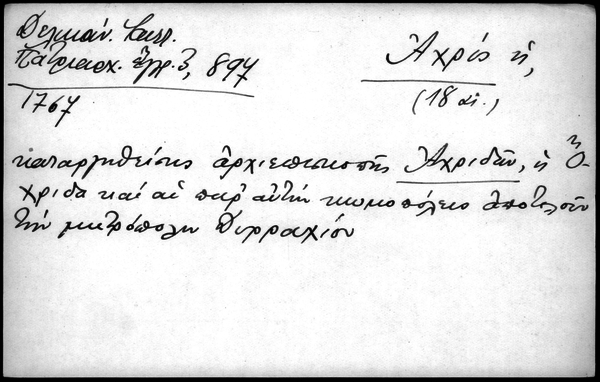 Δελικάν. Καλλ.
Πατριαρχ. ἔγγρ. 3, 897
1767
Ἀχρίς ἡ,
(18 αἰ.)
καταργηθείσης ἀρχιεπισκοπῆς Ἀχριδῶν, ἡ Ὀ-
χρίδα καί αἱ παρ' αὐτήν κωμοπόλεις ἀποτελοῦν
τήν μητρόπολη Δυρραχίου